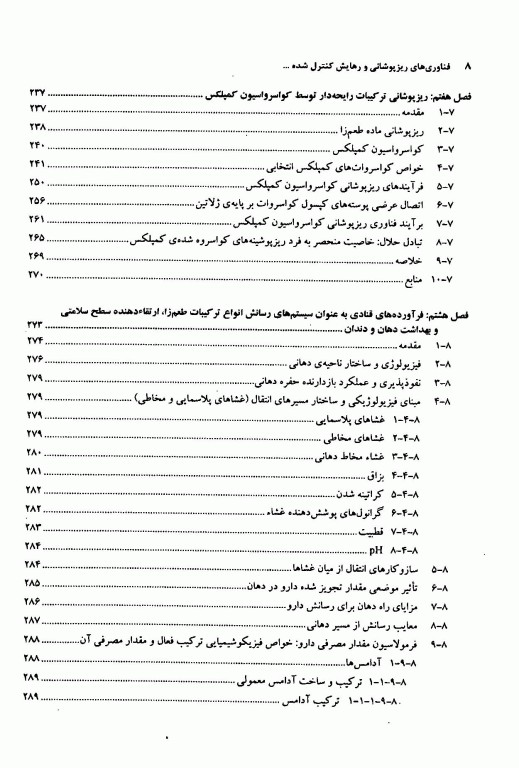 ۸ فناوری‌های ریزپوشانی و رهایش کنترل شده ...
فصل هفتم: ریزپوشانی ترکیبات رایحه‌دار توسط کواسرواسیون کمپلکس ........ ۲۳۷
۷-۱ مقدمه ........ ۲۳۷
۷-۲ ریزپوشانی ماده طعم‌زا ........ ۲۳۸
۷-۳ کواسرواسیون کمپلکس ........ ۲۴۰
۷-۴ خواص کواسروات‌های کمپلکس انتخابی ........ ۲۴۱
۷-۵ فرآیندهای ریزپوشانی کواسرواسیون کمپلکس ........ ۲۵۰
۷-۶ اتصال عرضی پوسته‌های کپسول کواسروات بر پایه‌ی ژلاتین ........ ۲۵۶
۷-۷ برآیند فناوری ریزپوشانی کواسرواسیون کمپلکس ........ ۲۶۱
۷-۸ تبادل حلال: خاصیت منحصر به فرد ریزپوشینه‌های کواسروه شده‌ی کمپلکس ........ ۲۶۵
۷-۹ خلاصه ........ ۲۶۹
۷-۱۰ منابع ........ ۲۷۰
فصل هشتم: فرآورده‌های قنادی به عنوان سیستم‌های رسانش انواع ترکیبات طعم‌زا، ارتقاءدهنده سطح سلامتی
و بهداشت دهان و دندان ........ ۲۷۳
۸-۱ مقدمه ........ ۲۷۴
۸-۲ فیزیولوژی و ساختار ناحیه‌ی دهانی ........ ۲۷۶
۸-۳ نفوذپذیری و عملکرد بازدارنده حفره دهانی ........ ۲۷۹
۸-۴ مبنای فیزیولوژیکی و ساختار مسیرهای انتقال (غشاهای پلاسمایی و مخاطی) ........ ۲۷۹
۸-۴-۱ غشاهای پلاسمایی ........ ۲۷۹
۸-۴-۲ غشاهای مخاطی ........ ۲۷۹
۸-۴-۳ غشاء مخاط دهانی ........ ۲۸۰
۸-۴-۴ بزاق ........ ۲۸۱
۸-۴-۵ کراتینه شدن ........ ۲۸۲
۸-۴-۶ گرانول‌های پوشش‌دهنده غشاء ........ ۲۸۲
۸-۴-۷ قطبیت ........ ۲۸۳
۸-۴-۸ pH ........ ۲۸۴
۸-۵ سازوکارهای انتقال از میان غشاها ........ ۲۸۴
۸-۶ تأثیر موضعی مقدار تجویز شده دارو در دهان ........ ۲۸۵
۸-۷ مزایای راه دهان برای رسانش دارو ........ ۲۸۶
۸-۸ معایب رسانش از مسیر دهانی ........ ۲۸۷
۸-۹ فرمولاسیون مقدار مصرفی دارو: خواص فیزیکوشیمیایی ترکیب فعال و مقدار مصرفی آن ........ ۲۸۸
۸-۹-۱ آدامس‌ها ........ ۲۸۸
۸-۹-۱-۱ ترکیب و ساخت آدامس معمولی ........ ۲۸۹
۸-۹-۱-۱-۱ ترکیب آدامس ........ ۲۸۹